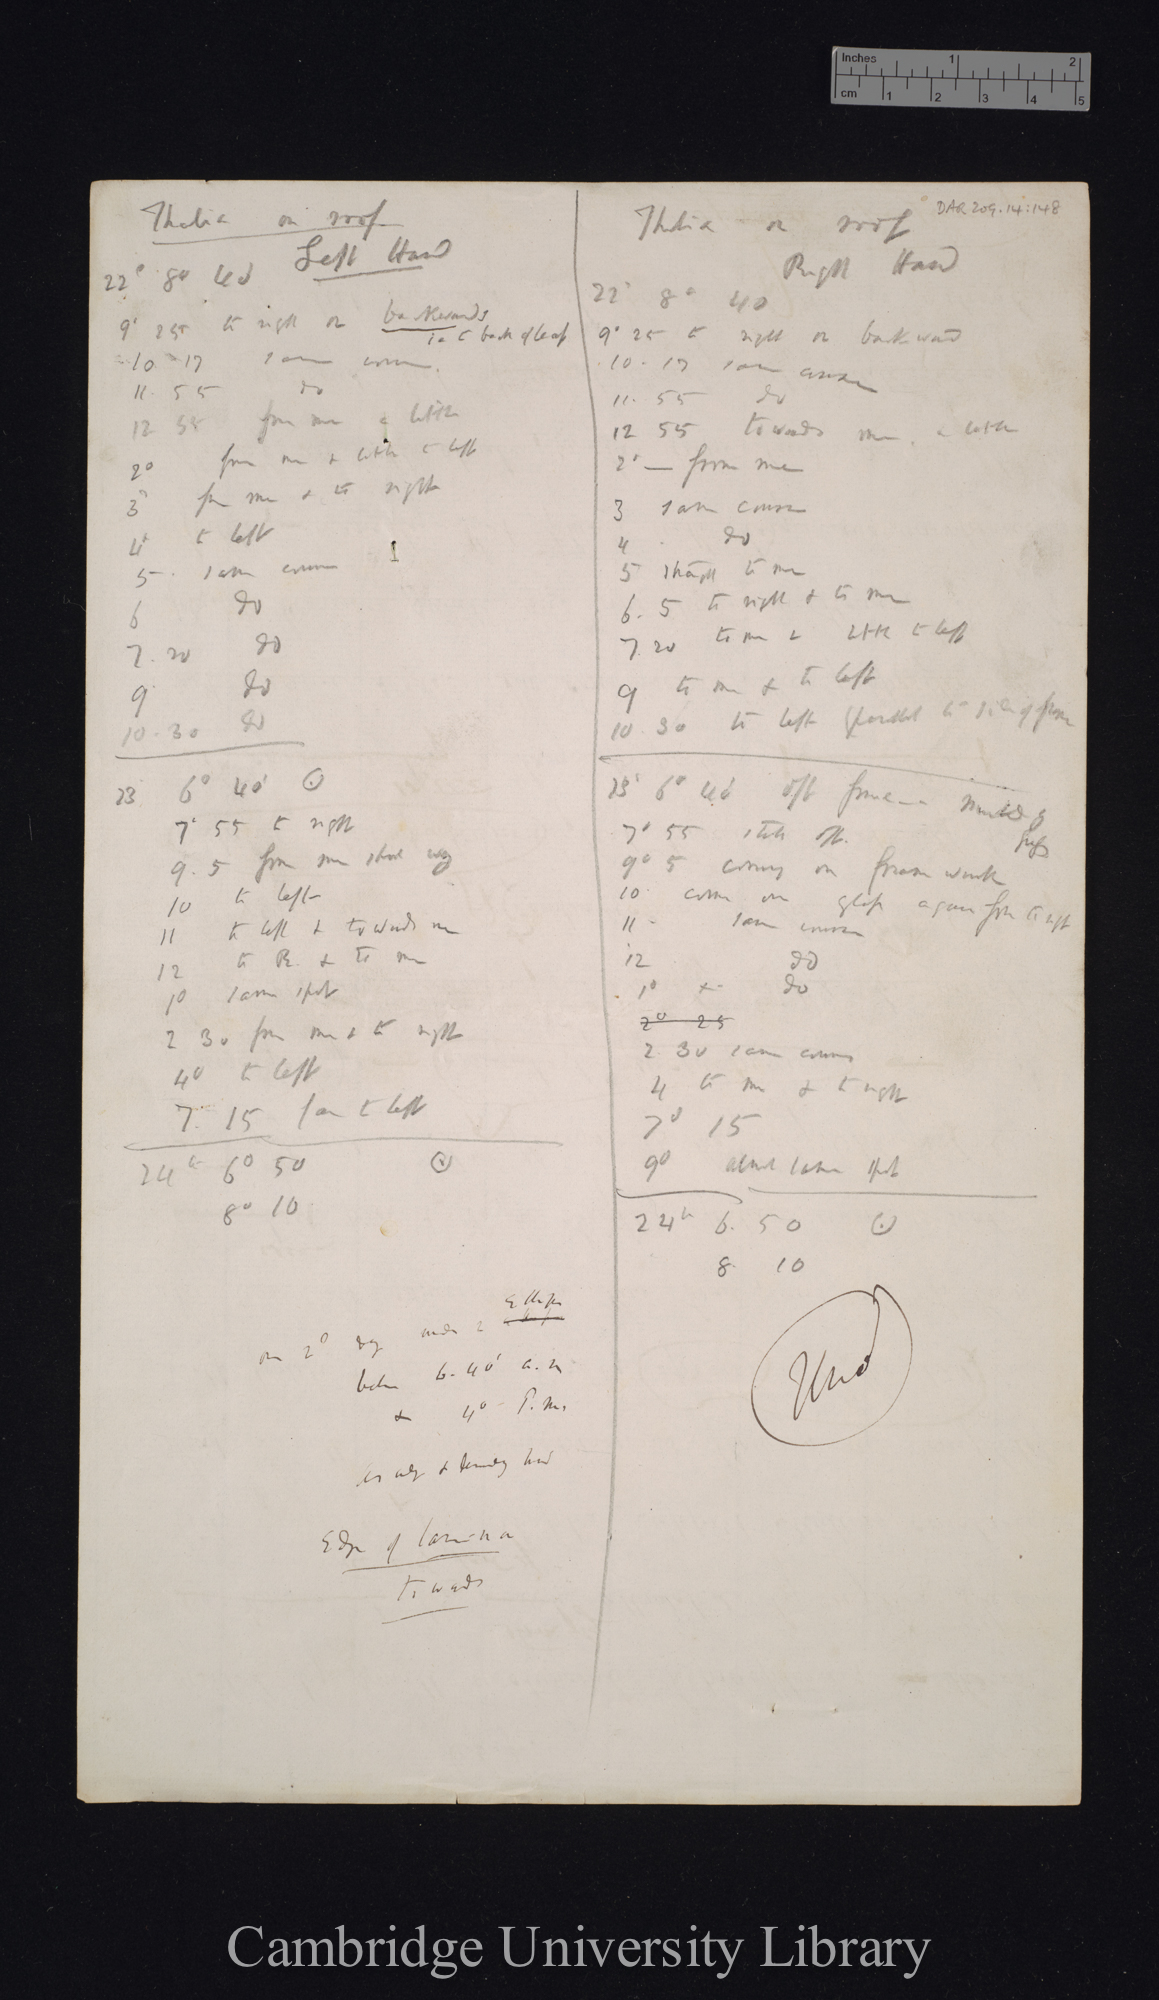 Inches 1 2
cm 1 2 3 4 5
DAR 209.14:148
Thalia on roof
Left Hand
22° 8° 40'
9° 25 to right or backwards
ie to back of leaf
10 17 same course.
11. 55 do
12 55 from me a little
2° from me & little to left
3° from me & to right
4° to left
5. same course
6 do
7. 20 do
9 do
10. 30 do
23 6° 40' ⊙
7° 55 to right
9. 5 from me short way
10 to left
11 to left & towards me
12 to R. & to me
1° same spot
2 30 from me & to right
4° to left
7. 15 to left
24th 6° 50 ⊙
8° 10
on 2° day made 2 Ellipses
between 6. 40' a.m
& 4° P.m.
Edge of lamina
towards
Thalia on roof
Right Hand
22° 8° 40
9° 25 to right or backward
10. 17 same course
11. 55 do
12 55 towards me. a little
2° — from me
3 same course
4 do
5 straight to me
6. 5 to right & to me
7. 20 to me & little to left
9 to me & to left
10 30 to left (parallel to side of frame
23° 6° 40' off frame
7° 55 still off.
9° 5 coming on frame work
10 come on glass again from to right
11 - same course
12 do
1° do
2° 25
2. 30 same course
4 to me & to right
7° 15
9° about same spot
24th 6. 50 ⊙
8. 10
Used
Cambridge University Library